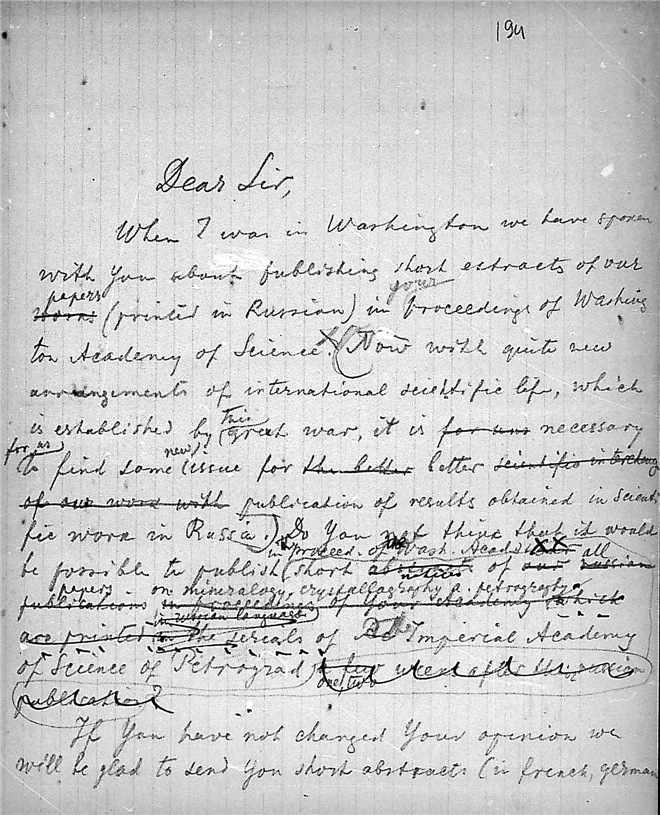 194
Dear Sir,
When I was in Washington we have spoken
with You about publishing short extracts of our
papers your
works (printed in Russian) in Proceedings of Washing
ton Academy of Science. (Now with quite new
arrangements of international scientific life, which
is established by this great war, it is for us necessary
for us new
to find some issue for the better better scientific interchang
of our work with publication of results obtained in Scienti
fic work in Russia.) Do You not think that it would
in Proceed. of Wash. Acad. XX all
be possible to publish short abstracts of our russian
notices
papers on mineralogy, crystallography a. petrography
publications in proceedings of Your Academy (which
in russian language
are printed in the serials of Imperial Academy
of Science of Petrograd) week after the russian
one two
publication?
If You have not changed Your opinion we
will be glad to send You short abstracts (in french, german